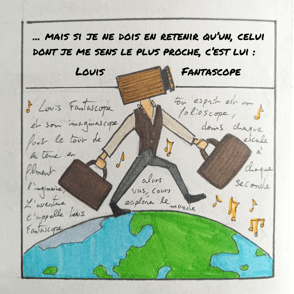 ... MAIS SI JE NE DOIS EN RETENIR QU'UN, CELUI
DONT JE ME SENS LE PLUS PROCHE, C'EST LUI :
LOUIS FANTASCOPE
Louis Fantascope
et son imaginascope
font le tour de
la terre en
filment
l'imaginaire.
L'aventure
s'appelle Louis
Fantascope
Ton esprit est un
folioscope,
dans chaque
escale
à
chaque
seconde
alors
vas, cours
explorer le monde